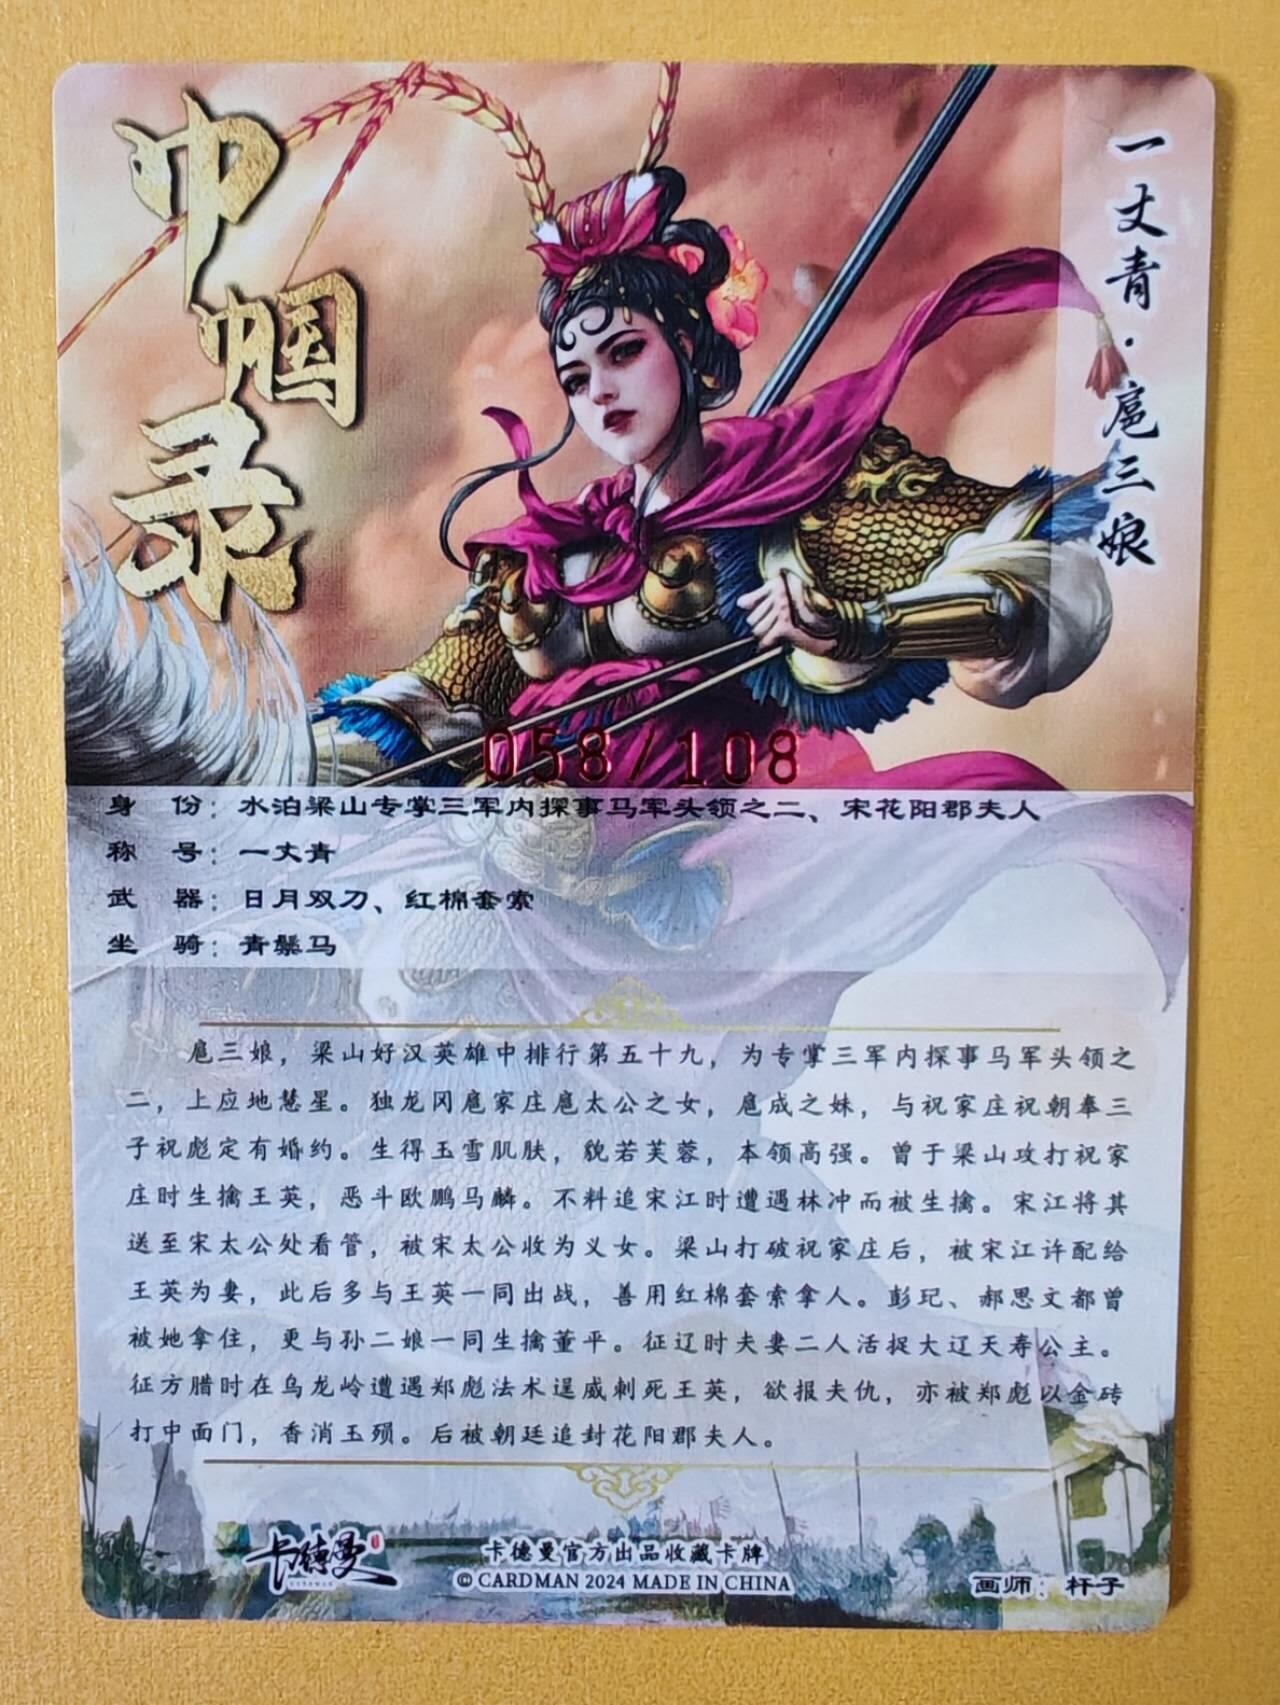 巾帼录
一丈青·扈三娘
058/108
身 份：水泊梁山专掌三军内探事马军头领之二、宋花阳郡夫人
称 号：一丈青
武 器：日月双刀、红棉套索
坐 骑：青鬃马
扈三娘，梁山好汉英雄中排行第五十九，为专掌三军内探事马军头领之
二，上应地慧星。独龙冈扈家庄扈太公之女，扈成之妹，与祝家庄祝朝奉三
子祝彪定有婚约。生得玉雪肌肤，貌若芙蓉，本领高强。曾于梁山攻打祝家
庄时生擒王英，恶斗欧鹏马麟。不料追宋江时遭遇林冲而被生擒。宋江将其
送至宋太公处看管，被宋太公收为义女。梁山打破祝家庄后，被宋江许配给
王英为妻，此后多与王英一同出战，善用红棉套索拿人。彭玘、郝思文都曾
被她拿住，更与孙二娘一同生擒董平。征辽时夫妻二人活捉大辽天寿公主。
征方腊时在乌龙岭遭遇郑彪法术逞威刺死王英，欲报夫仇，亦被郑彪以金砖
打中面门，香消玉殒。后被朝廷追封花阳郡夫人。
卡德曼
卡德曼官方出品收藏卡牌
© CARDMAN 2024 MADE IN CHINA
画师：杆子